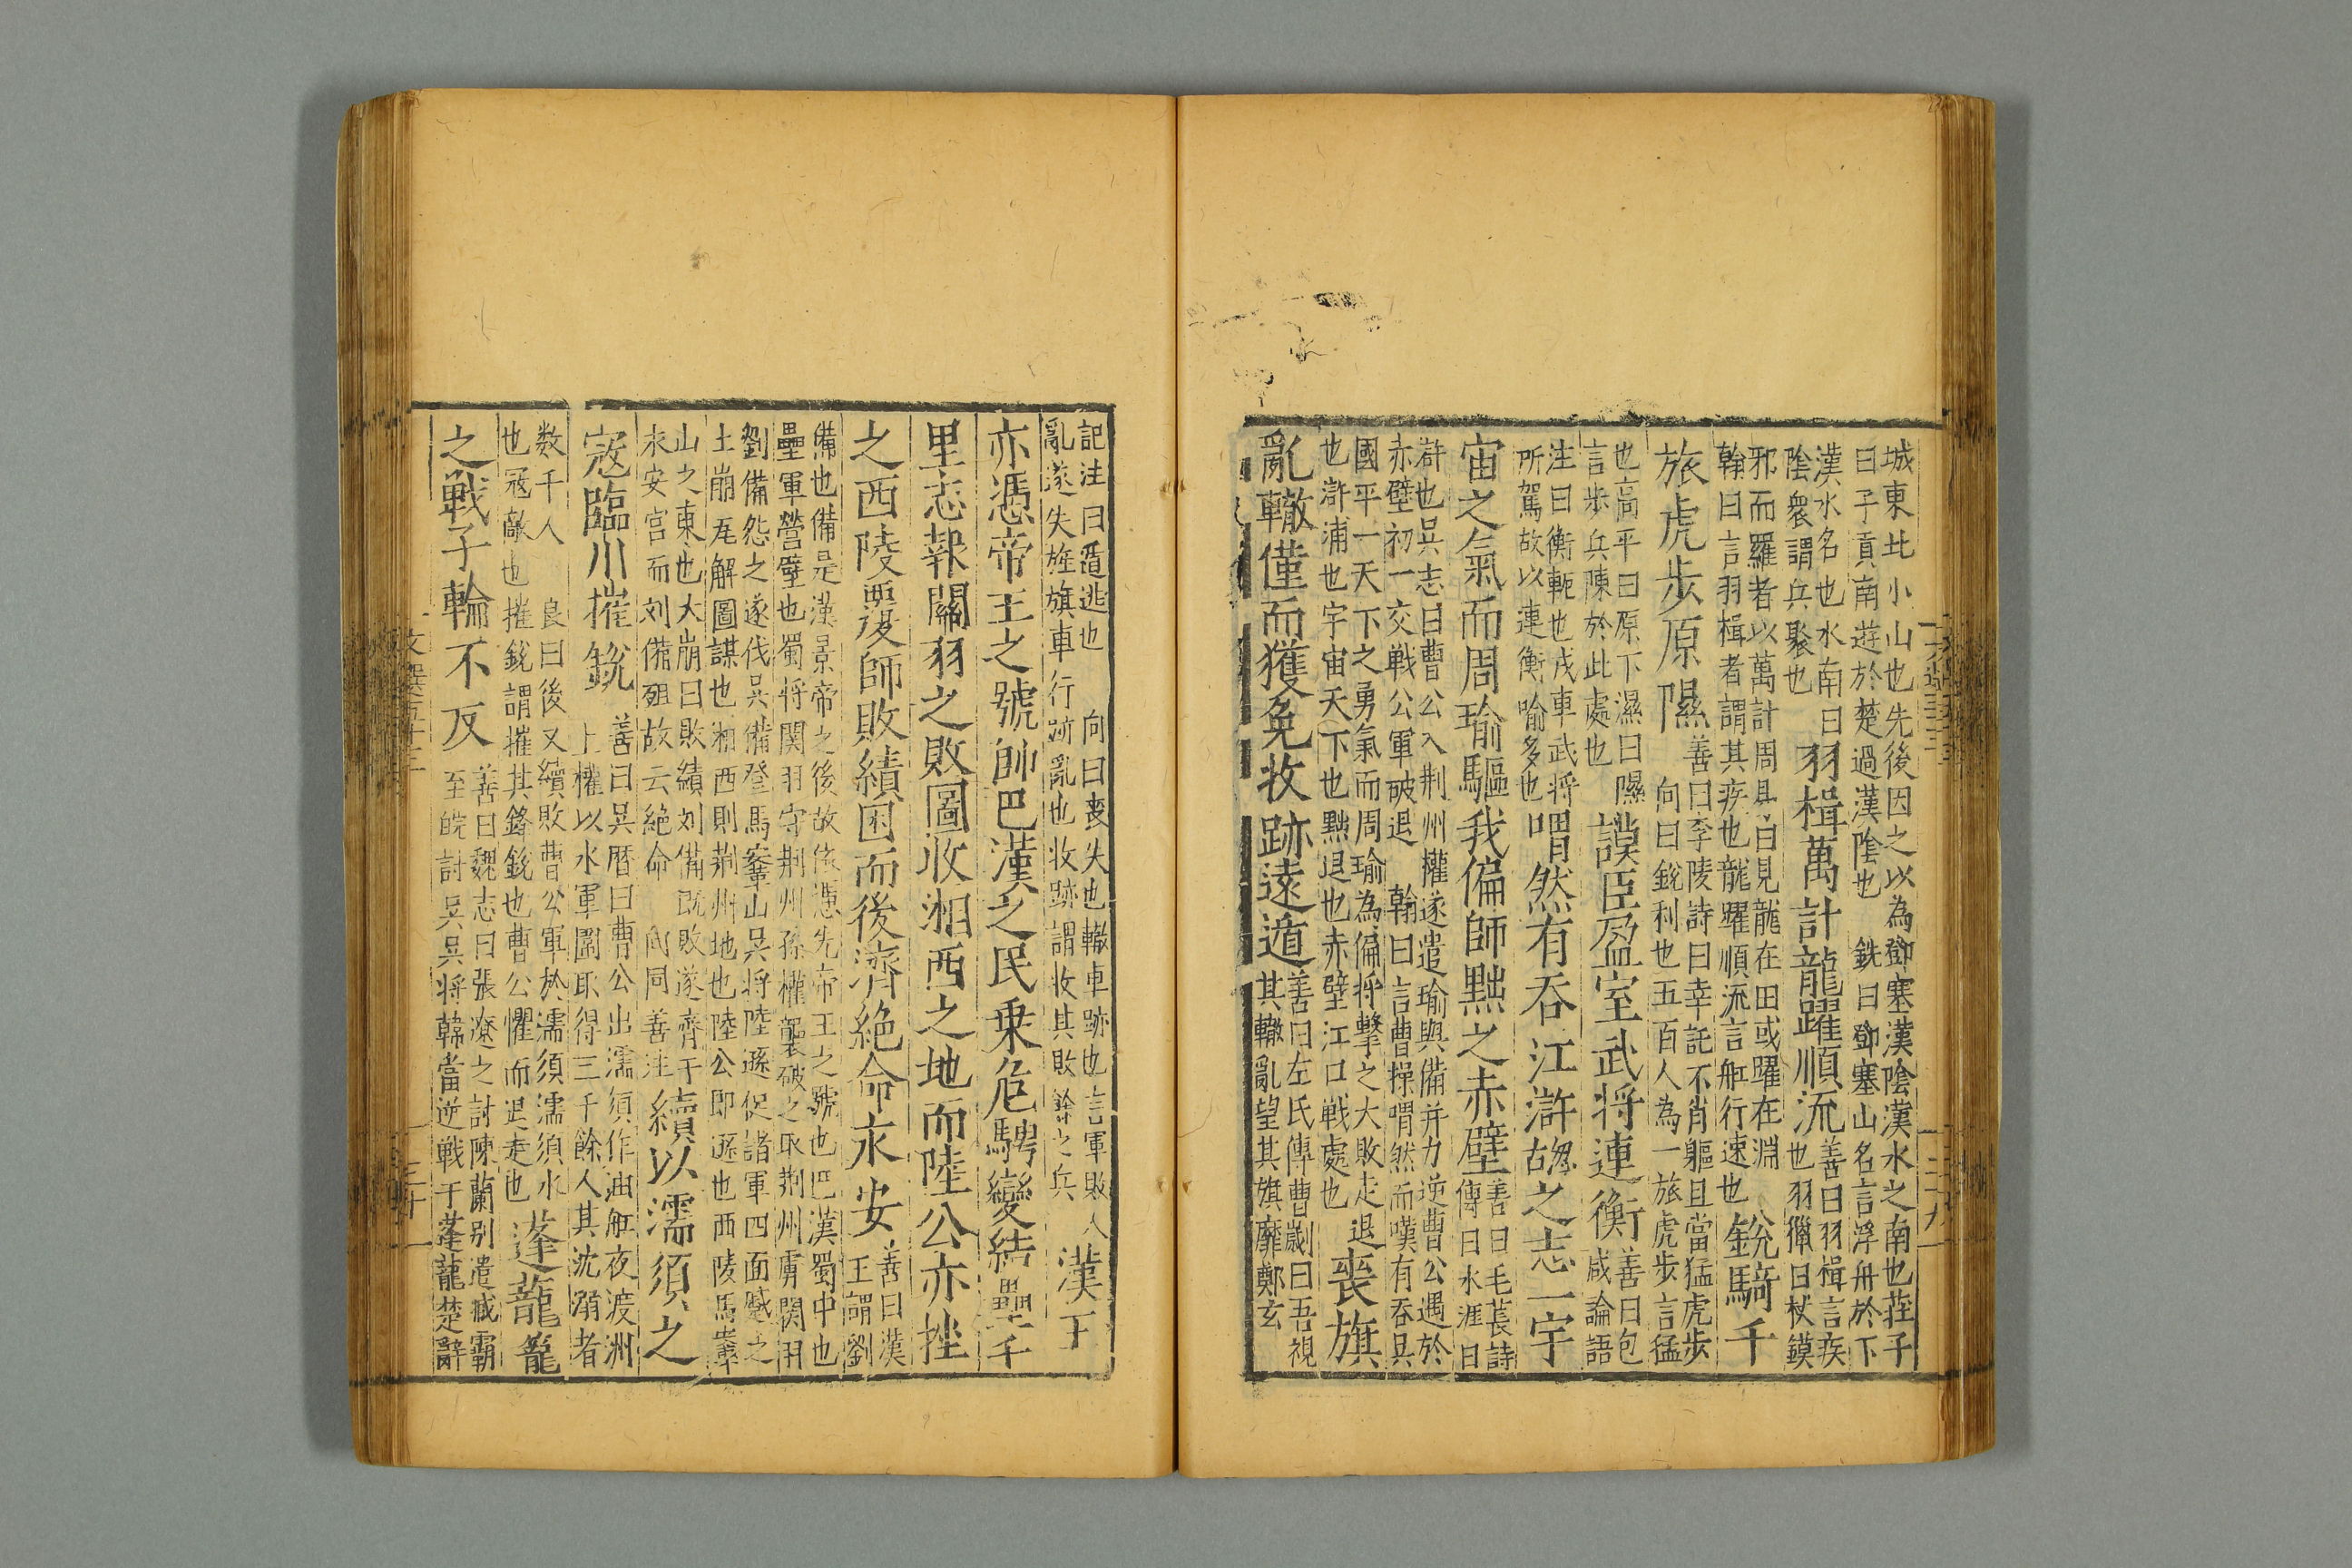 城東北小山也先後因之以為鄧塞漢陰漢水之南也莊子
曰子貢南遊於楚過漢陰也　銑曰鄧塞山名言浮舟於下
漢水名也水南曰
陰衆謂兵聚也
羽楫萬計龍躍順流
善曰羽楫言疾
也羽獵曰杖鏌
邪而羅者以萬計周易曰見龍在田或躍在淵
翰曰言羽楫者謂其疾也龍躍順流言舡行速也
銳騎千
旅虎步原隰
善曰李陵詩曰幸託不肖軀且當猛虎步
向曰銳利也五百人為一旅虎步言猛
也高平曰原下濕曰隰
言步兵陳於此處也
謨臣盈室武将連衡
善曰包
咸論語
注曰衡軛也戎車武将
所駕故以連衡喻多也
喟然有吞江滸之志一宇
宙之氣而周瑜驅我偏師黜之赤壁
善曰毛萇詩
傳曰水涯曰
滸也吳志曰曹公入荆州權遂遣瑜與備并力逆曹公遇於
赤壁初一交戦公軍破退　翰曰言曹操喟然而嘆有吞吳
國平一天下之勇氣而周瑜為偏将擊之大敗走退
也滸浦也宇宙天下也黜退也赤壁江口戦處也
喪旗
亂轍僅而獲免收跡遠遁
善曰左氏傳曹劌曰吾視
其轍亂望其旗靡鄭玄
記注曰遁逃也　向曰喪失也轍車跡也言軍敗人
亂遂失旌旗車行跡亂也收跡謂收其敗餘之兵
漢王
亦憑帝王之號帥巴漢之民乗危騁變結壘千
里志報關羽之敗圖收湘西之地而陸公亦挫
之西陵覆師敗績困而後濟絶命永安
善曰漢
王謂劉
備也備是漢景帝之後故依憑先帝王之號也巴漢蜀中也
壘軍營壁也蜀将関羽守荆州孫權襲破之取荆州虜関羽
劉備怨之遂伐吳備登馬鞌山吳将陸遜促諸軍四面蹙之
土崩瓦解圖謀也湘西則荆州地也陸公即遜也西陵馬鞌
山之東也大崩曰敗績刘備既敗遂濟于
永安宫而刘備殂故云絶命　向同善注
續以濡須之
寇臨川摧銳
善曰吳曆曰曹公出濡須作油舡夜渡洲
上權以水軍圍取得三千餘人其沈溺者
数千人　良曰後又續敗曹公軍於濡須濡須水
也寇敵也摧銳謂摧其鋒銳也曹公懼而退走也
蓬蘢籠
之戰子輪不反
善曰魏志曰張遼之討陳蘭别遣臧霸
至皖討吳吳将韓當逆戦于蓬蘢楚辭
三十